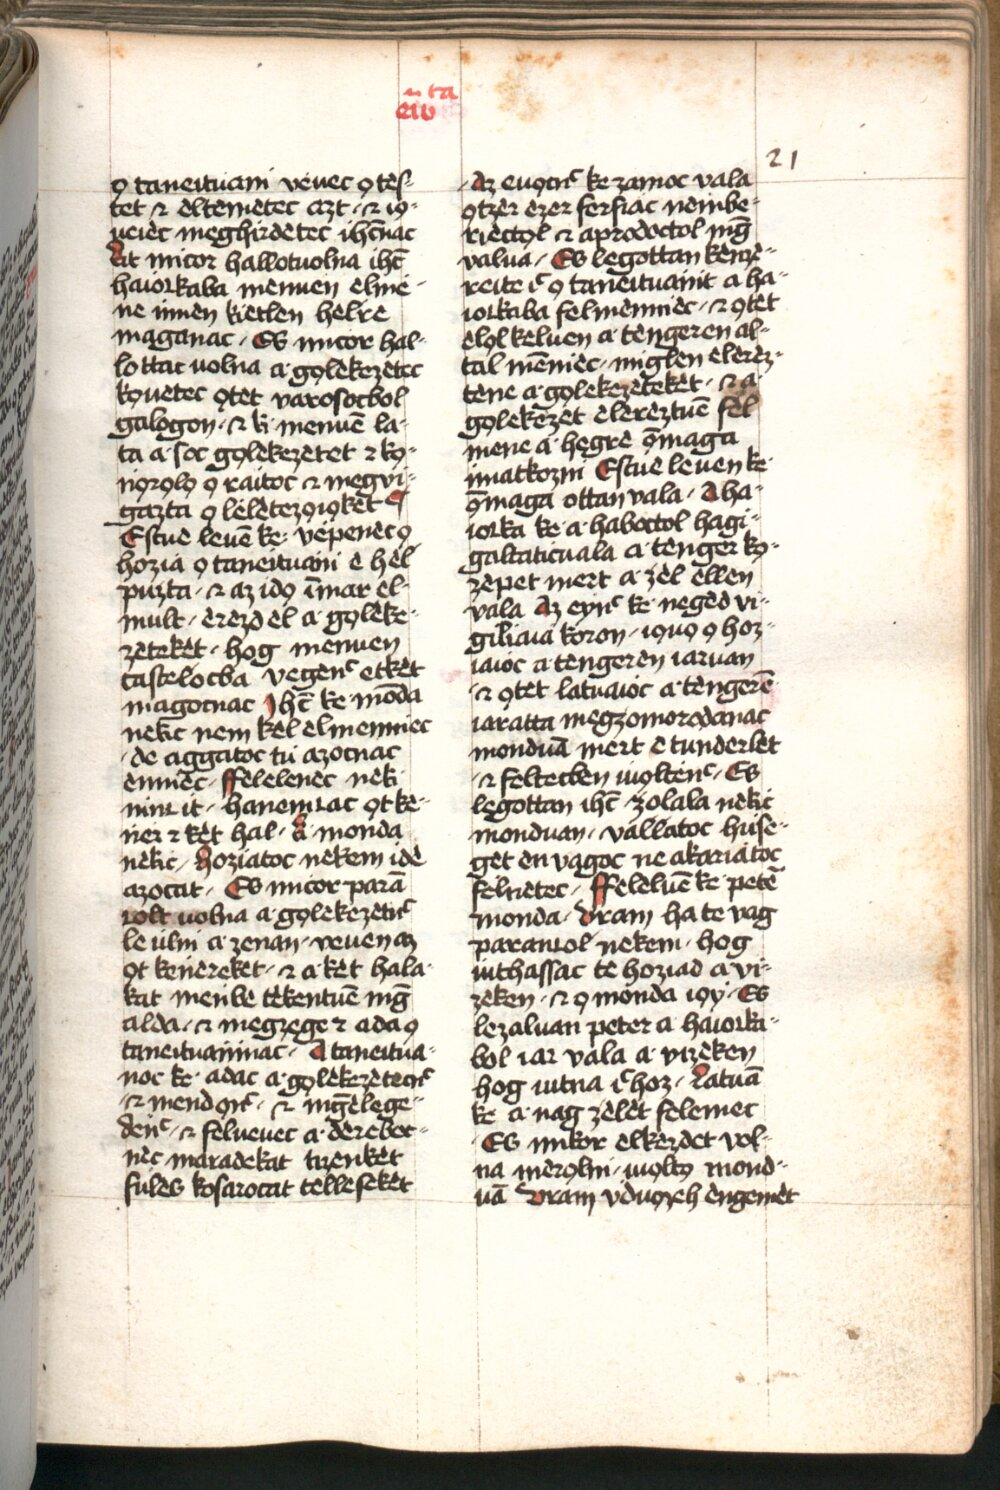 n̄ ta
eiv
21
ọ taneituani veuec ọtes-
tet ⁊ eltemetec azt · ⁊ iọ-
ueiec meghirdetec ihc̄nac
Ait micor hallotuolna ihc̄
haiorkaba menuen elme-
ne innen kietlen helre
maganac · Es micor hal-
lottac uolna a gọlekezetec
kọuetec ọtet varosocbol
galogon · ⁊ ki menuē la-
ta a soc gọlekezetet ⁊ kọ-
nọrọlọ ọ raitoc ⁊ megvi-
gazta ọ leletezọiọket
Estue leuē ke · vepenec ọ
hozia ọ taneituani e hel
puzta · ⁊ az idọ īmar el-
mult · erezd el a gọleke-
zeteket · hog menuen
castelocba vegenc̄ etket
magocnac Ihc̄ ke mōda
nekic nem kel elmenniec
· de aggatoc tu azocnac
enniēc · ffelelenec neki
ninc it · hanemcac ọt ke-
ner ⁊ ket hal · Ki monda
nekic · Hoziatoc nekem ide
azocat · Es micor parā
colt uolna a gọlekezetnc̄
le ulni a zenan · veuen az
ọt kenereket · ⁊ a ket hala-
kat menbe tekentuē mḡ
alda · ⁊ megzege ⁊ ada ọ
taneituaninac · A taneitua-
noc ke · adac a gọlekezetecnc̄
· ⁊ mendọnc̄ · ⁊ mḡelege-
denc̄ · ⁊ felueuec a derebec-
nec maradekat tizenket
fules kosarocat telleseket
· Az euọcnc̄ ke zamoc vala
ọtzer ezer ferfiac nembe-
riectọl ⁊ aprodoctol mḡ
valua · Es legottan kenze-
reite ic̄ ọ taneituanit a ha-
iorkaba felmenniec · ⁊ ọtet
elọl keluen a tengeren al-
tal mēniec · miglen elerez-
tene a gọlekezeteket · ⁊ a
gọlekēzet elereztuē fel
mene a hegre ọ̄maga
imatkozni Estue leuen ke
ọ̄maga ottan vala · A ha-
iorka ke a haboctol hagi-
galtaticuala a tenger kọ-
zepet mert a zel ellen
vala Az eyinc̄ ke neged vi-
giliaia koron · iọuọ ọ hoz-
iaioc a tengeren iaruan
· ⁊ ọtet latuaioc a tengerē
iaratta megzomorodanac
monduā mert e tunderlet
· ⁊ feltecben iuọltenc̄ · Es
legottan ihc̄ · zolala nekic
monduan · vallatoc hise-
get en vagoc ne akariatoc
felnetec · ffeleluē ke petē
monda · Vram ha te vag
parančol nekem · hog
iuthassac te hoziad a vi-
zeken · ⁊ ọ monda iọy · Es
lezaluan peter a haiorka-
bol iar vala a vizeken
hog iutna ic̄ hoz · Latuā
ke a nag zelet felemec
· Es mikor elkezdet vol-
na merọlni · iuọltọ mond-
uā Vram vduọzeh engemet